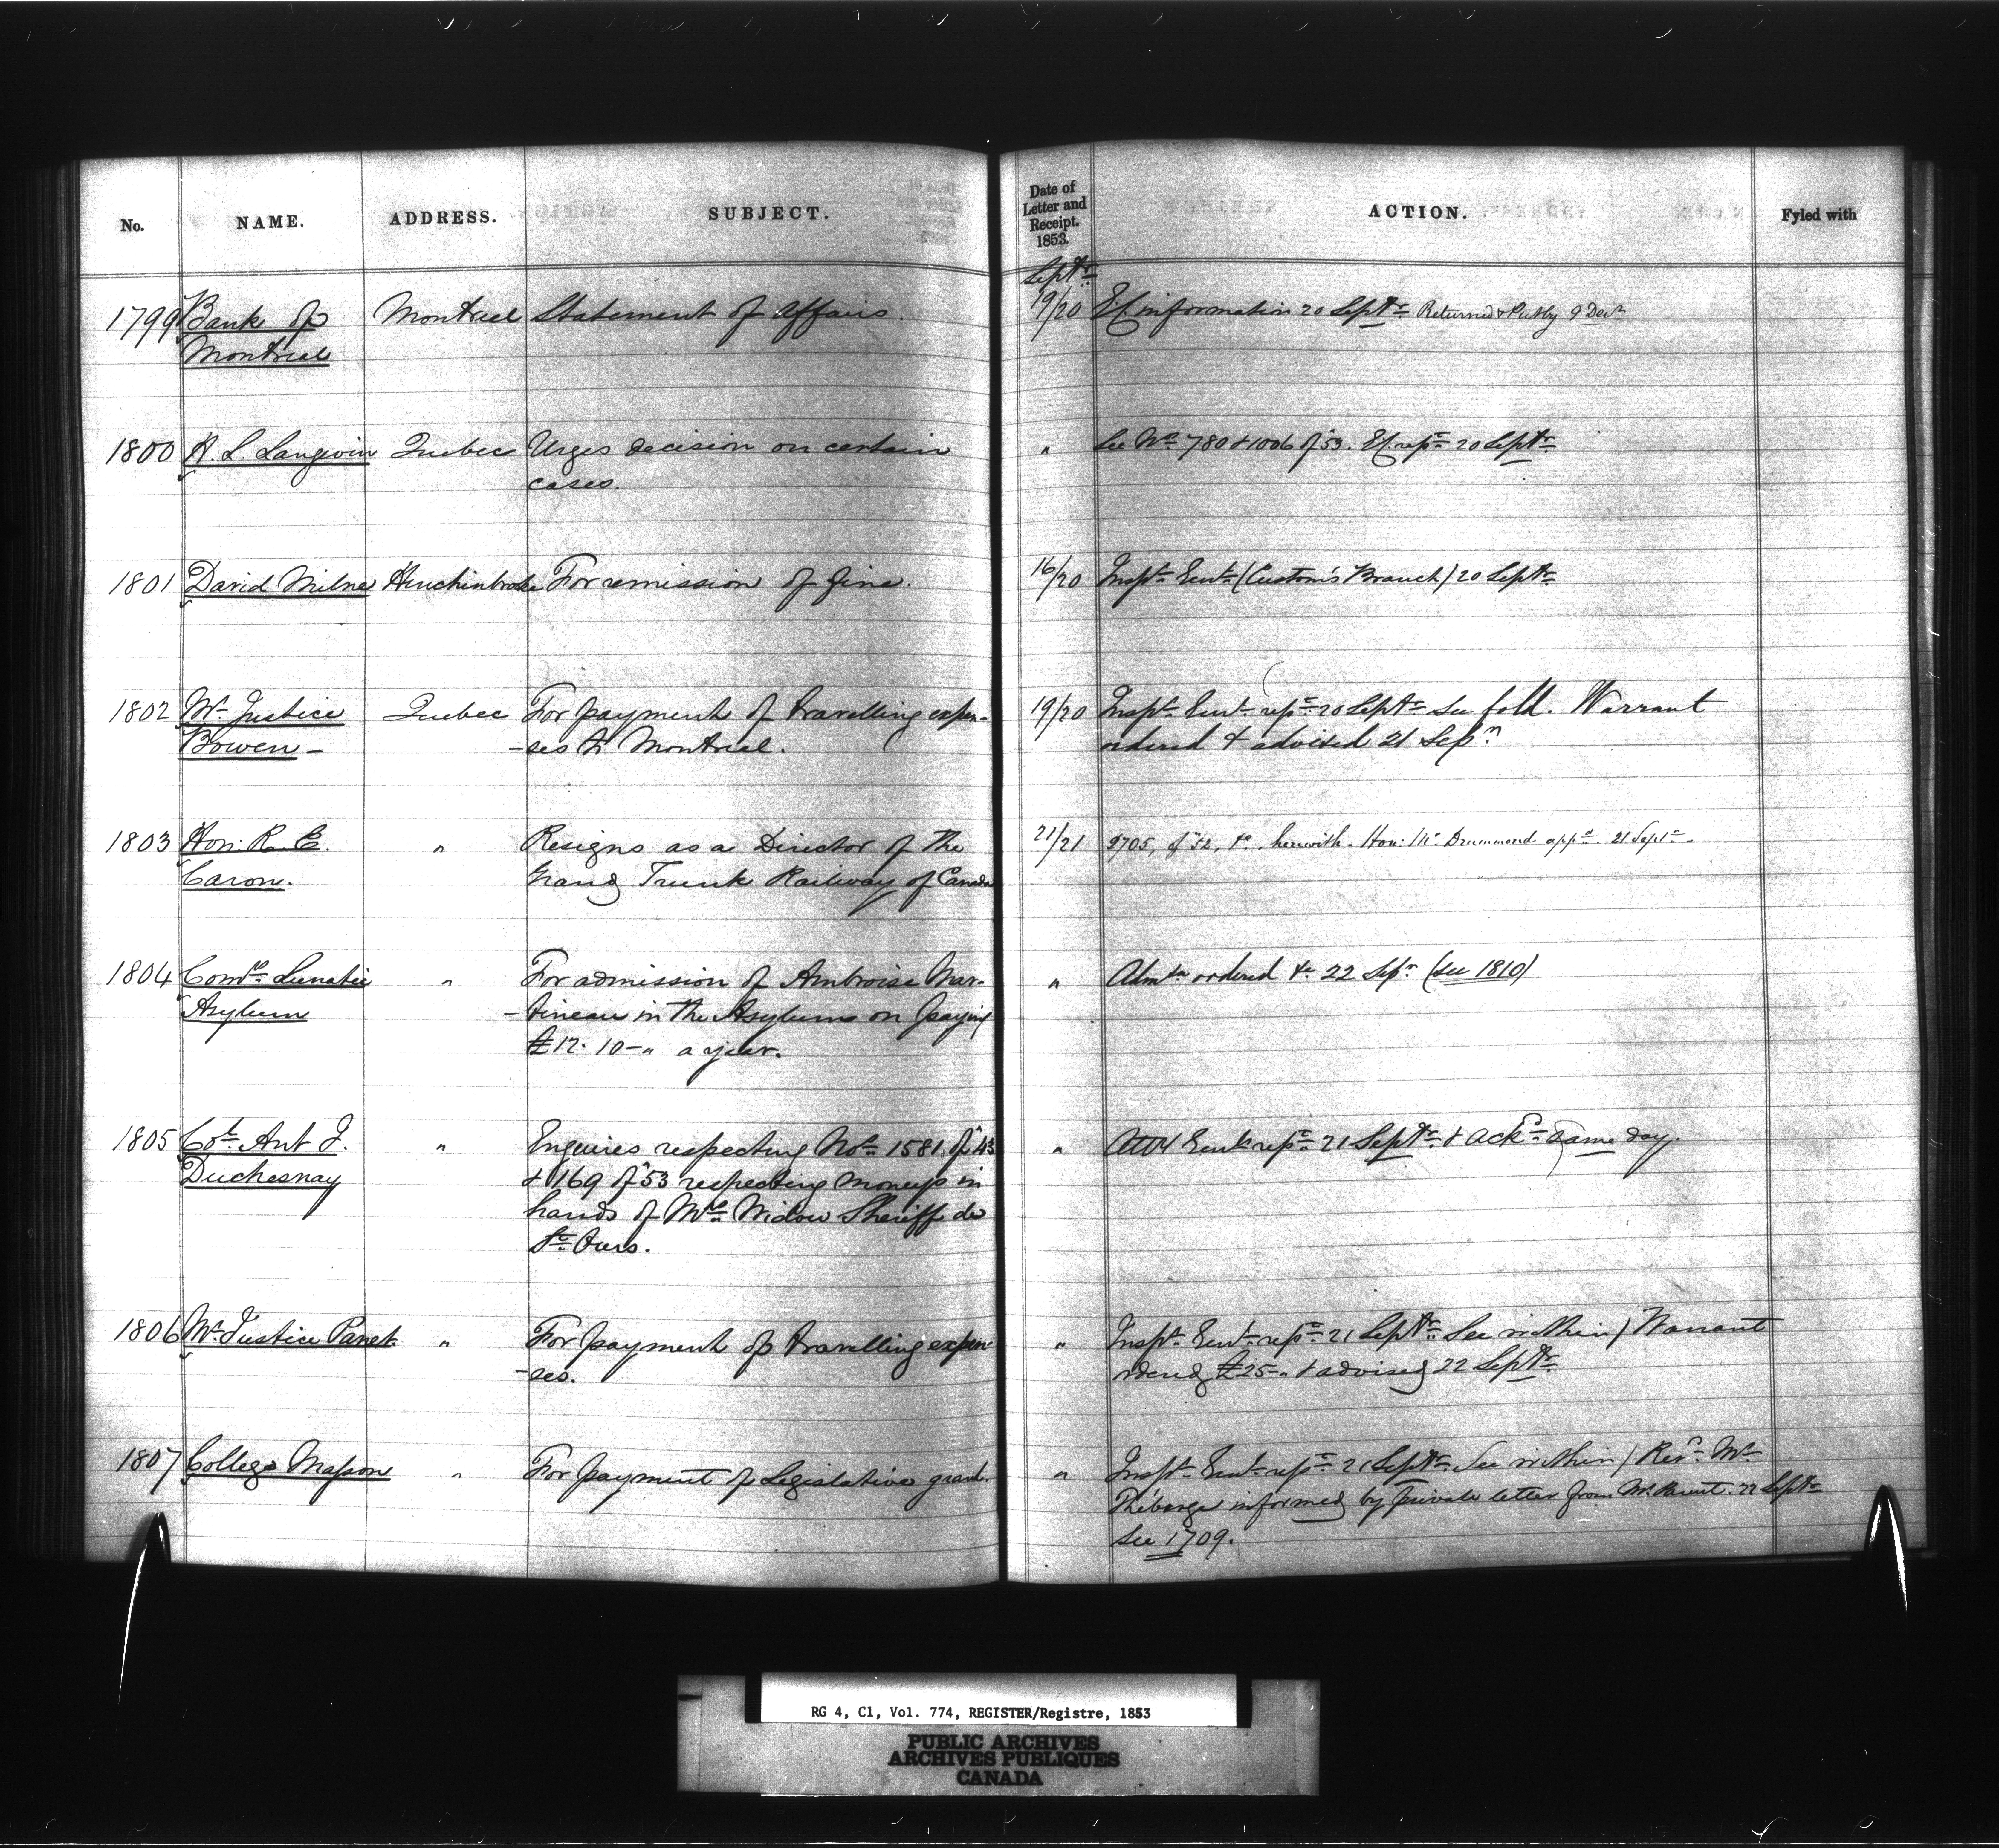 No. NAME. ADDRESS. SUBJECT. Date of Letter and Receipt. 1853. ACTION. Fyled with
Septr
1799 Bank of Montreal Statement of Affairs. 19/20 information 20 Septr Returned & Putby 9 Decr
Montreal
1800 H. L. Langevin Quebec Urges decision on certain " See Nos 780 & 1006 of 53. 20 Septr
cases.
1801 David Milne For remission of fine. 16/20 Inspr Genl (Custom's Branch) 20 Septr
1802 Mr Justice Quebec For payment of travelling expen- 19/20 Inspr Genl repc 20 Septr See fold. Warrant
Bowen - -ses to Montreal. ordered & advised 21 Sepr
1803 Hon: R. E. " Resigns as a Director of the 21/21 of 52, &c, herewith. Hon: Mr Drummond appd 21 Septr
Caron. Grand Trunk Railway of Canada
1804 Comrs Lunatic " For admission of Ambroise Mar- " Admn ordered &c 22 Sepr (see 1810)
Asylum -tineau in the Asylum on paying
£12. 10 - " a year.
1805 Col. Ant J. " Enquires respecting Nos 1581 of 43 " Genl repc 21 Septr & Ackd same day.
Duchesnay & 169 of 53 respecting moneys in
hands of Mrs Widow Sheriff de
St Ours.
1806 Mr Justice Panet " For payment of travelling expen- " Inspr Genl repc 21 Septr See within / Warrant
-ses. £25 - " & advised 22 Septr
1807 College Masson " For payment of Legislative grant. " Inspr Genl repc 21 Septr See within / Revd Mr
Théberge informed by private letter from Mr Parent. 22 Septr
See 1709.
RG 4, C1, Vol. 774, REGISTER/Registre, 1853
PUBLIC ARCHIVES
ARCHIVES PUBLIQUES
CANADA